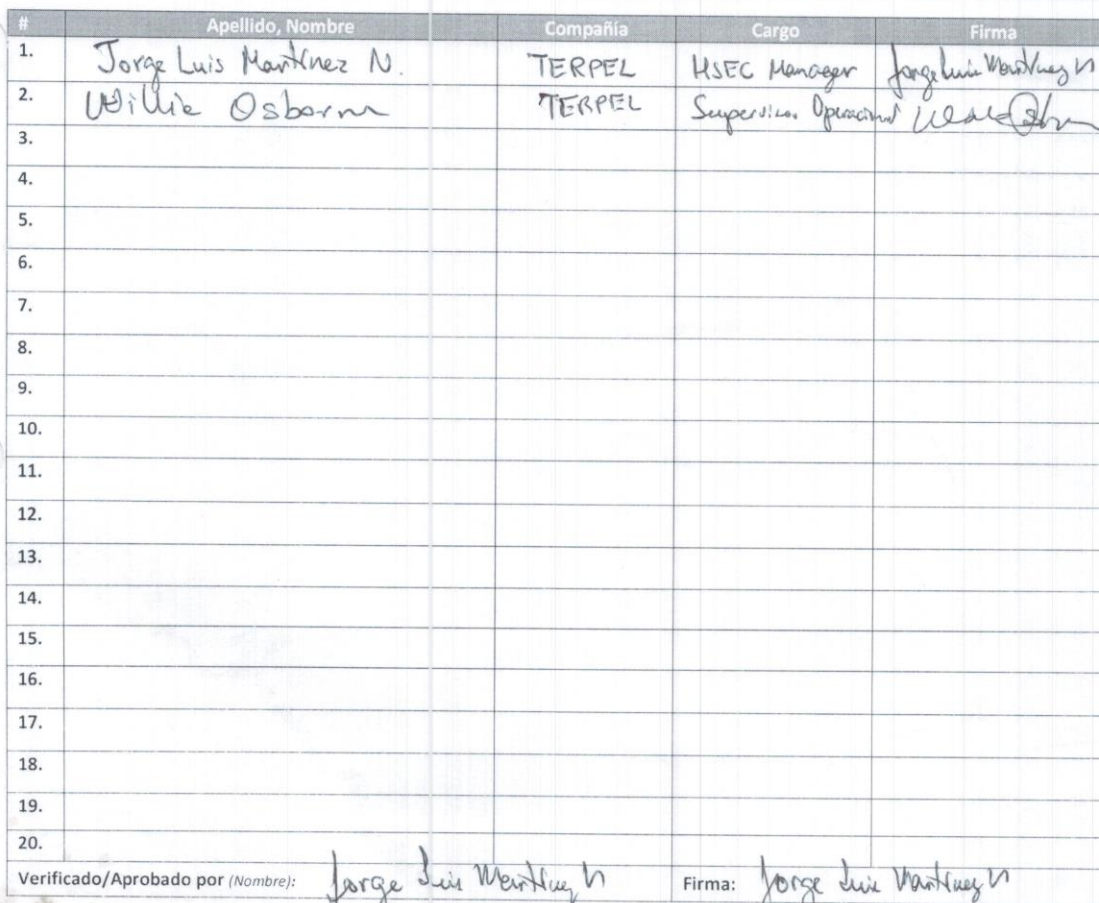 # Apellido, Nombre Compañía Cargo Firma
1. Jorge Luis Martínez N. TERPEL HSEC Manager Jorge Luis Martínez N
2. Willie Osborn TERPEL Supervisor Operacional
3.
4.
5.
6.
7.
8.
9.
10.
11.
12.
13.
14.
15.
16.
17.
18.
19.
20.
Verificado/Aprobado por (Nombre): Jorge Luis Martínez N Firma: Jorge Luis Martínez N